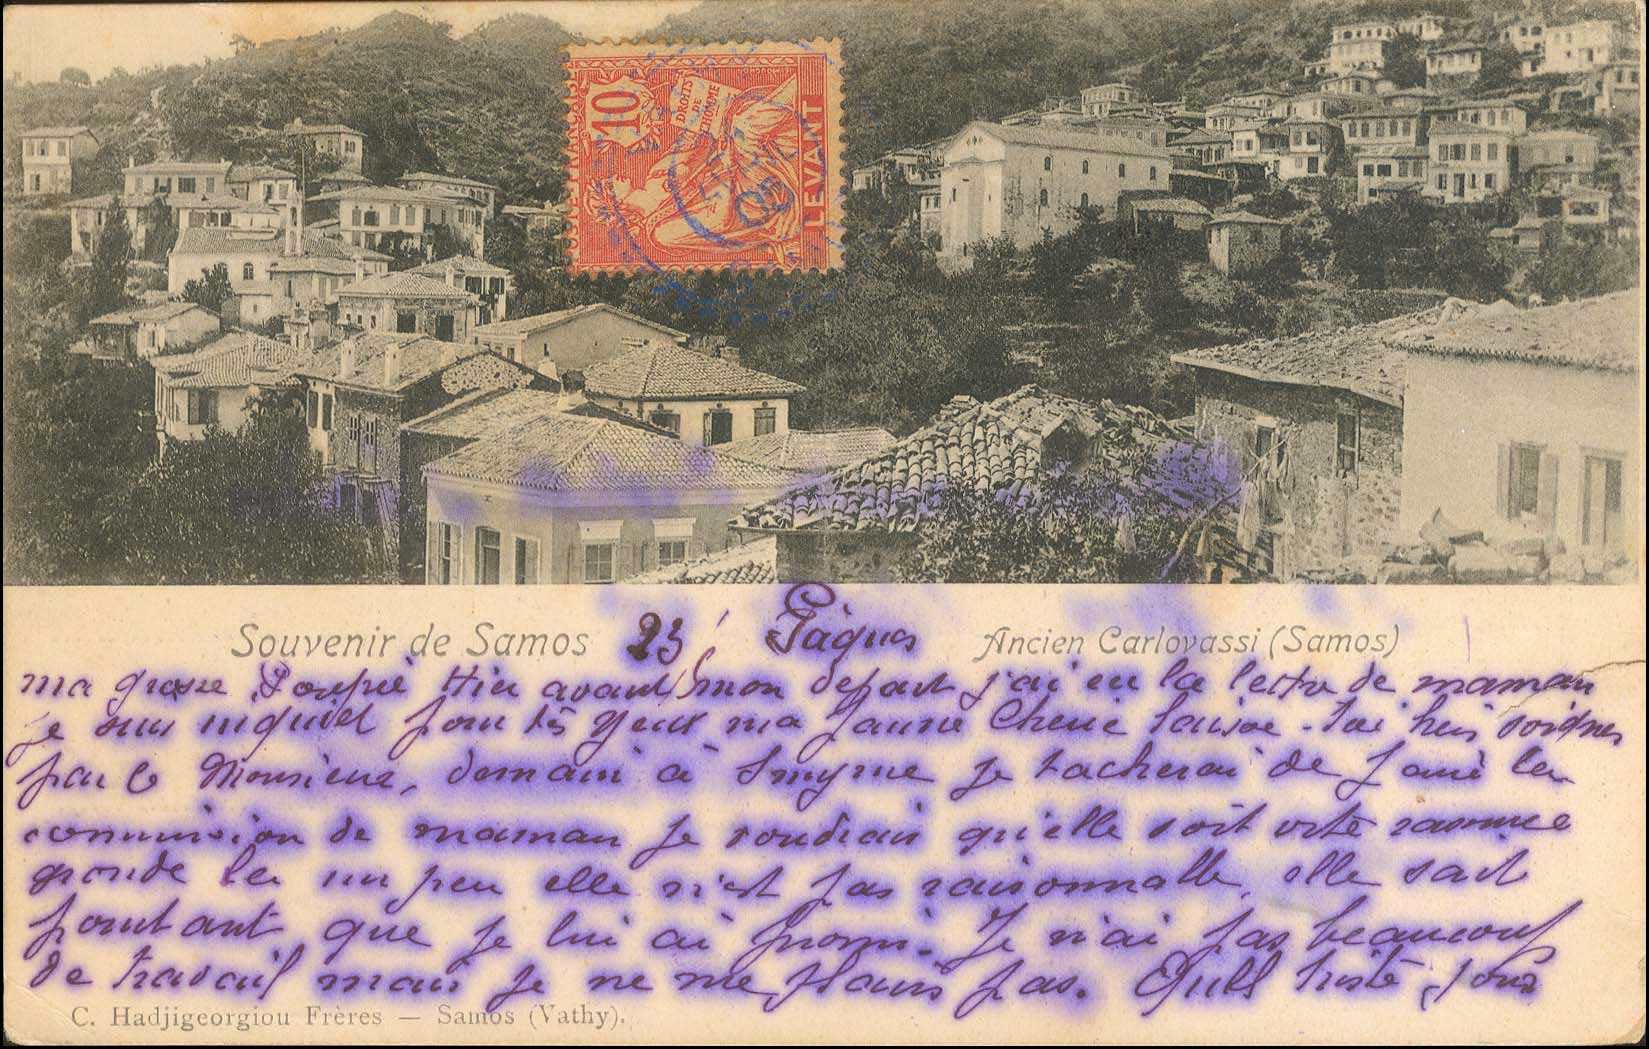 10
DROITS
DE
L'HOMME
LEVANT
Souvenir de Samos 23 Pâques Ancien Carlovassi (Samos)
ma grosse Poupée Hier avant mon depart j'ai eu la lettre de maman
je suis inquiet pour tes yeux ma Jeune Cherie laisse-toi bien soigner
par le Monsieur, demain à Smyrne je tacherai de faire la
commission de maman je voudrais qu'elle soit vite
gronde la un peu elle n'est pas raisonnable, elle sait
pourtant que je lui ai promis. Je n'ai pas beaucoup
de travail mais je ne me plains pas. Quel triste jour
C. Hadjigeorgiou Frères — Samos (Vathy).